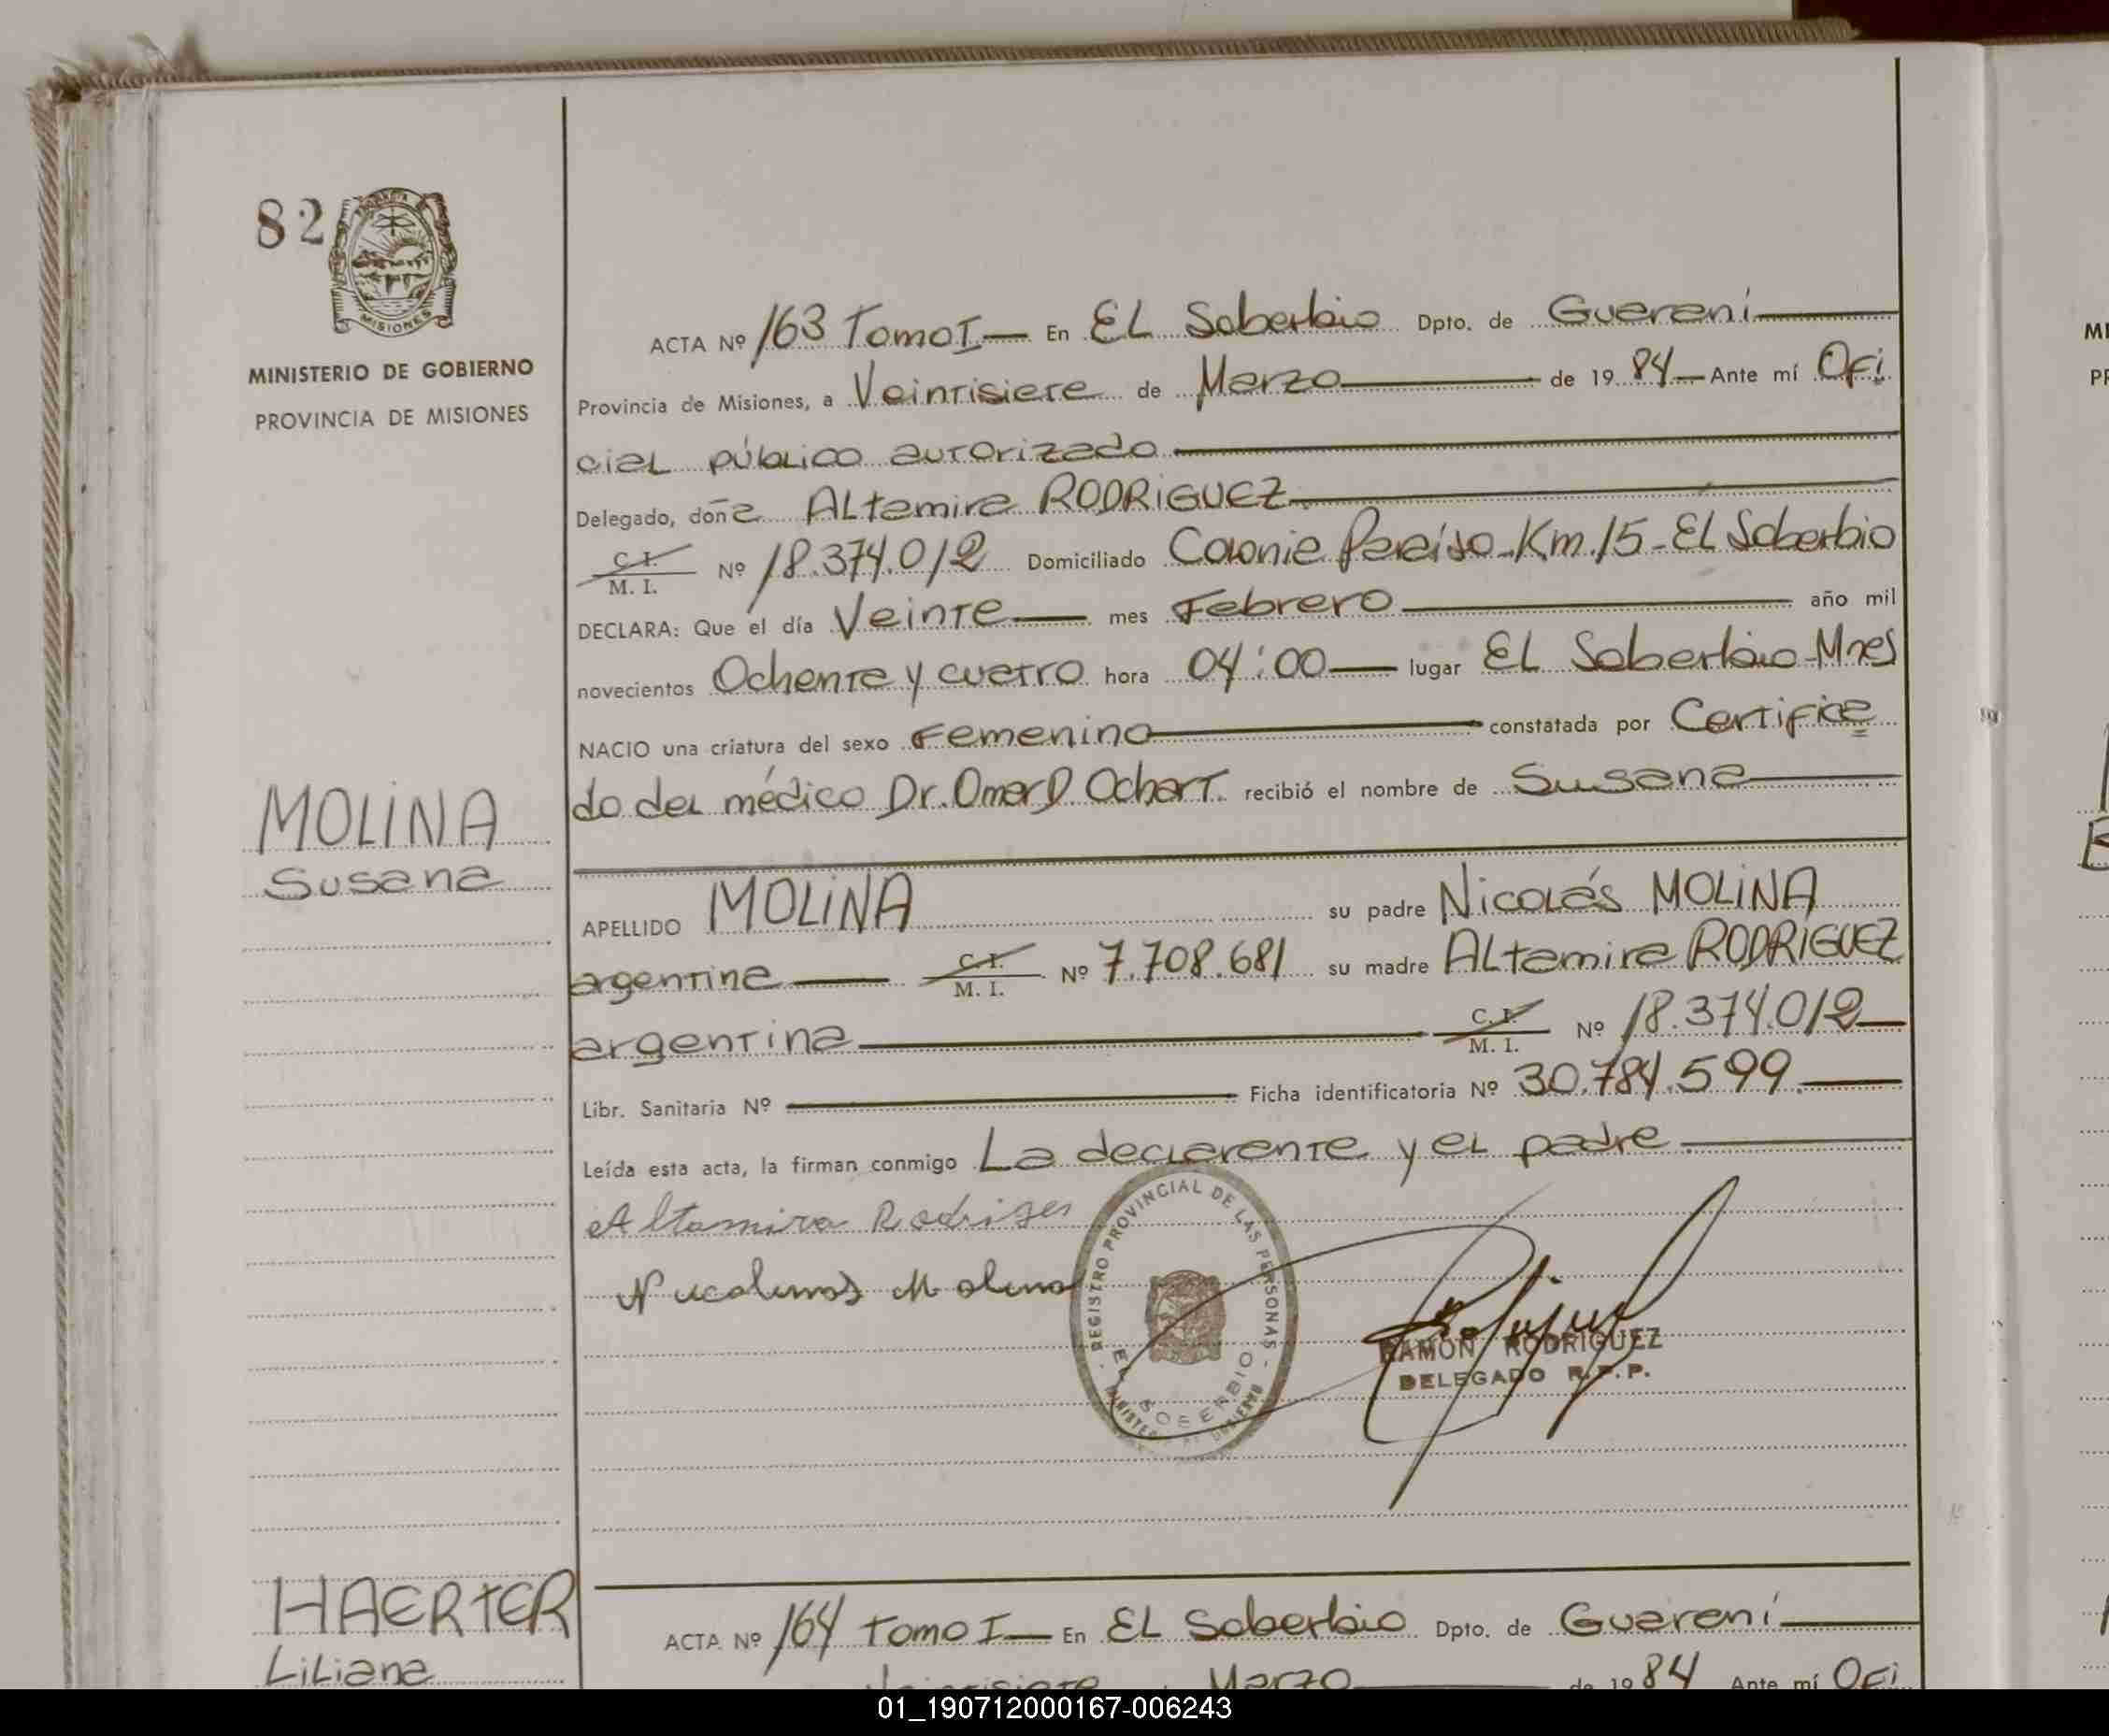 82
MISIONES
MINISTERIO DE GOBIERNO
PROVINCIA DE MISIONES
MOLINA
Susana
ACTA Nº 163 Tomo I — En EL Soberbio Dpto. de Guaraní
Provincia de Misiones, a Veintisiete de Marzo de 1984 — Ante mí Ofi
cial público autorizado
Delegado, doña Altamira RODRIGUEZ
C. I.
M. I. Nº 18.374.012 Domiciliado Colonia Paraíso - Km. 15 - El Soberbio
DECLARA: Que el día Veinte — mes Febrero año mil
novecientos Ochenta y cuatro hora 04:00 — lugar El Soberbio - Mnes
NACIO una criatura del sexo Femenino constatada por Certifica
do del médico Dr. Omar D. Ochart. recibió el nombre de Susana
APELLIDO MOLINA su padre Nicolás MOLINA
argentina — C. I.
M. I. Nº 7.708.681 su madre Altamira RODRIGUEZ
argentina C. I.
M. I. Nº 18.374.012
Libr. Sanitaria Nº Ficha identificatoria Nº 30.784.599.
Leída esta acta, la firman conmigo La declarante y el padre
Altamira Rodriges
Molina
REGISTRO PROVINCIAL DE LAS PERSONAS
EL SOBERBIO
RAMON RODRIGUEZ
DELEGADO R.P.P.
HAERTER
Liliana
ACTA Nº 164 Tomo I — En EL Soberbio Dpto. de Guaraní
Veintisiete Marzo de 1984 Ante mí Ofi
01_190712000167-006243